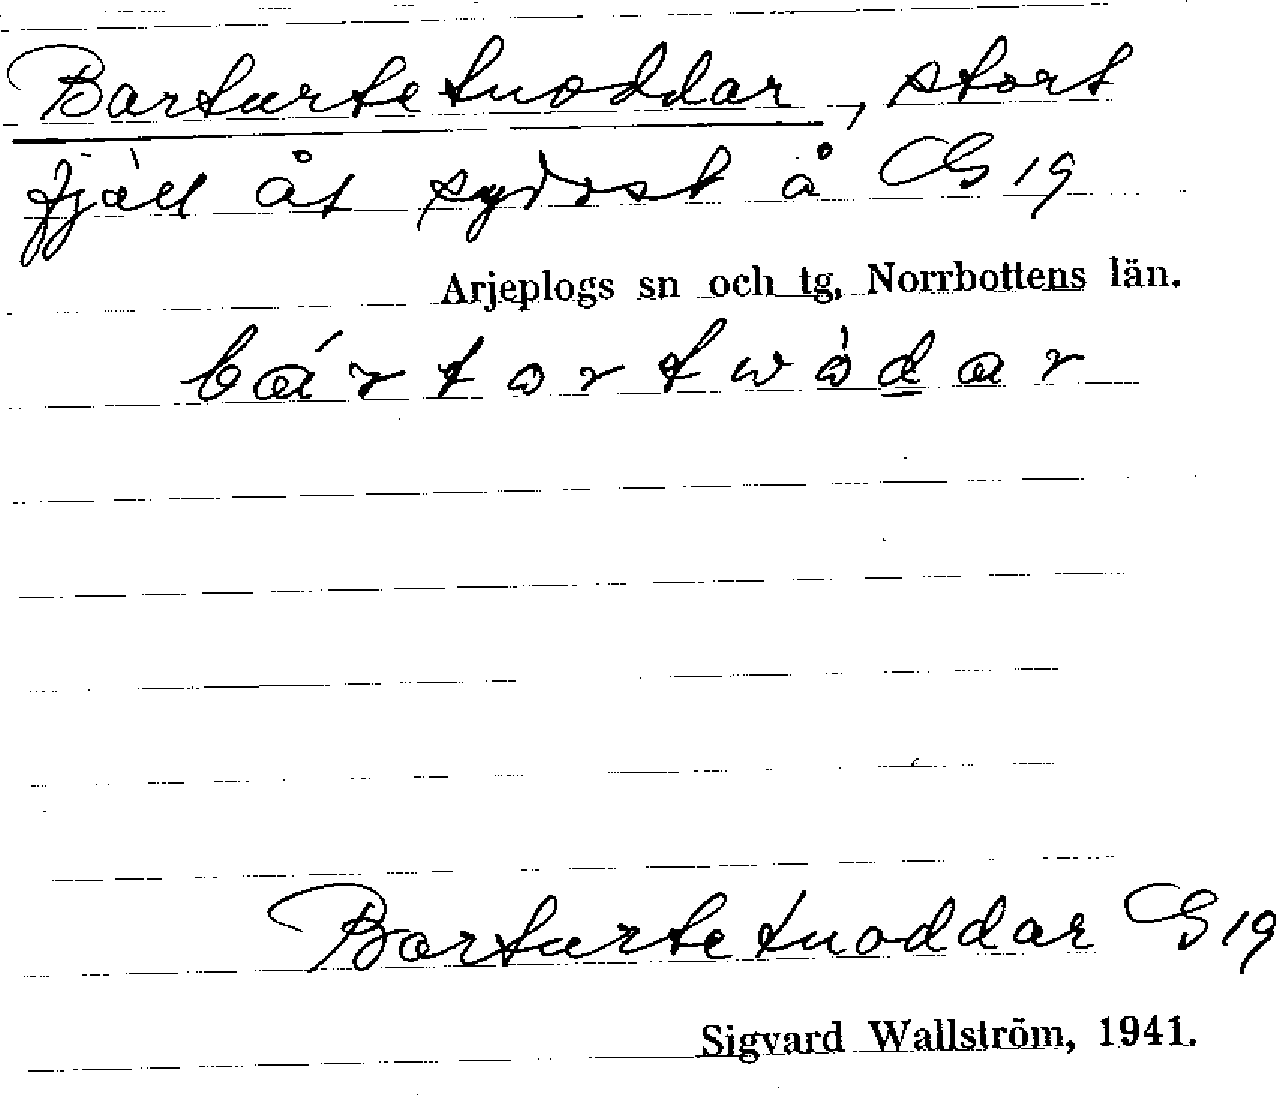 Barturtetuoddar, stort
fjäll åt sydost å G19
Arjeplogs sn och tg, Norrbottens län.
bártortwòdar
Barturtetuoddar G19
Sigvard Wallström, 1941.